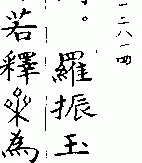 一二八一四
。羅振玉
若釋為